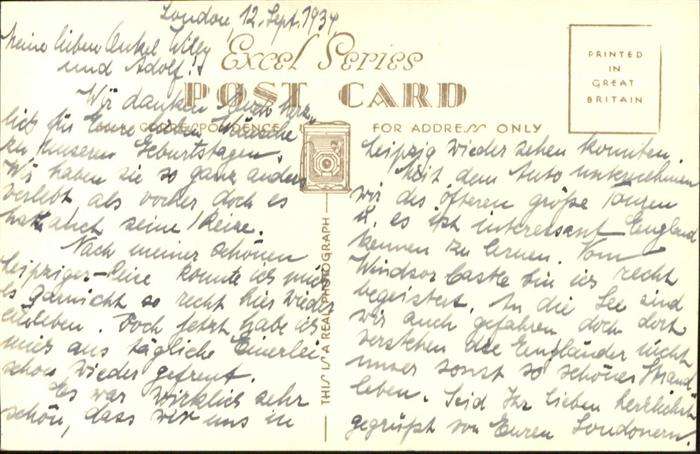 London, 12. Sept. 1934
Meine lieben Onkel Willy
und Adolf!
Excel Series
POST CARD
PRINTED
IN
GREAT
BRITAIN
CORRESPONDENCE
FOR ADDRESS ONLY
Wir danken Euch herz-
lich für Eure lieben Wünsche
zu unseren Geburtstagen.
Wir haben sie so ganz anders
verlebt als vorher doch es
hat auch seine Reize.
Nach meiner schönen
Leipziger-Reise konnte ich mich
es garnicht so recht hier wieder
einleben. Doch jetzt habe ich
mich ans tägliche Einerlei
schon wieder gefreut.
Es war wirklich sehr
schön, dass wir uns in
THIS IS A REAL PHOTOGRAPH
Leipzig wieder sehen konnten.
Mit dem Auto unternehmen
wir des öfteren größe Touren
u. es ist interessant England
kennen zu lernen. Vom
Windsor Castle bin ich recht
begeistert. In die See sind
wir auch gefahren doch dort
verstehen die Engländer nicht
unser sonst so schönes Strand
leben. Seid Ihr lieben herzlichst
gegrüßt von Euren Londonern.